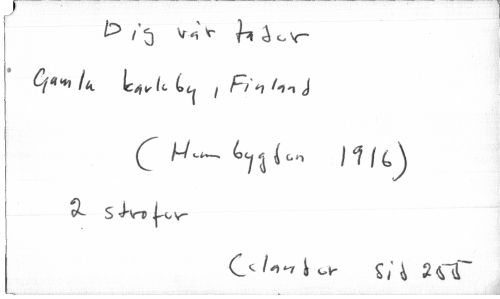 Dig vår fader
Gamla karleby, Finland
(Hembygden 1916)
2 strofer
Celander sid 255